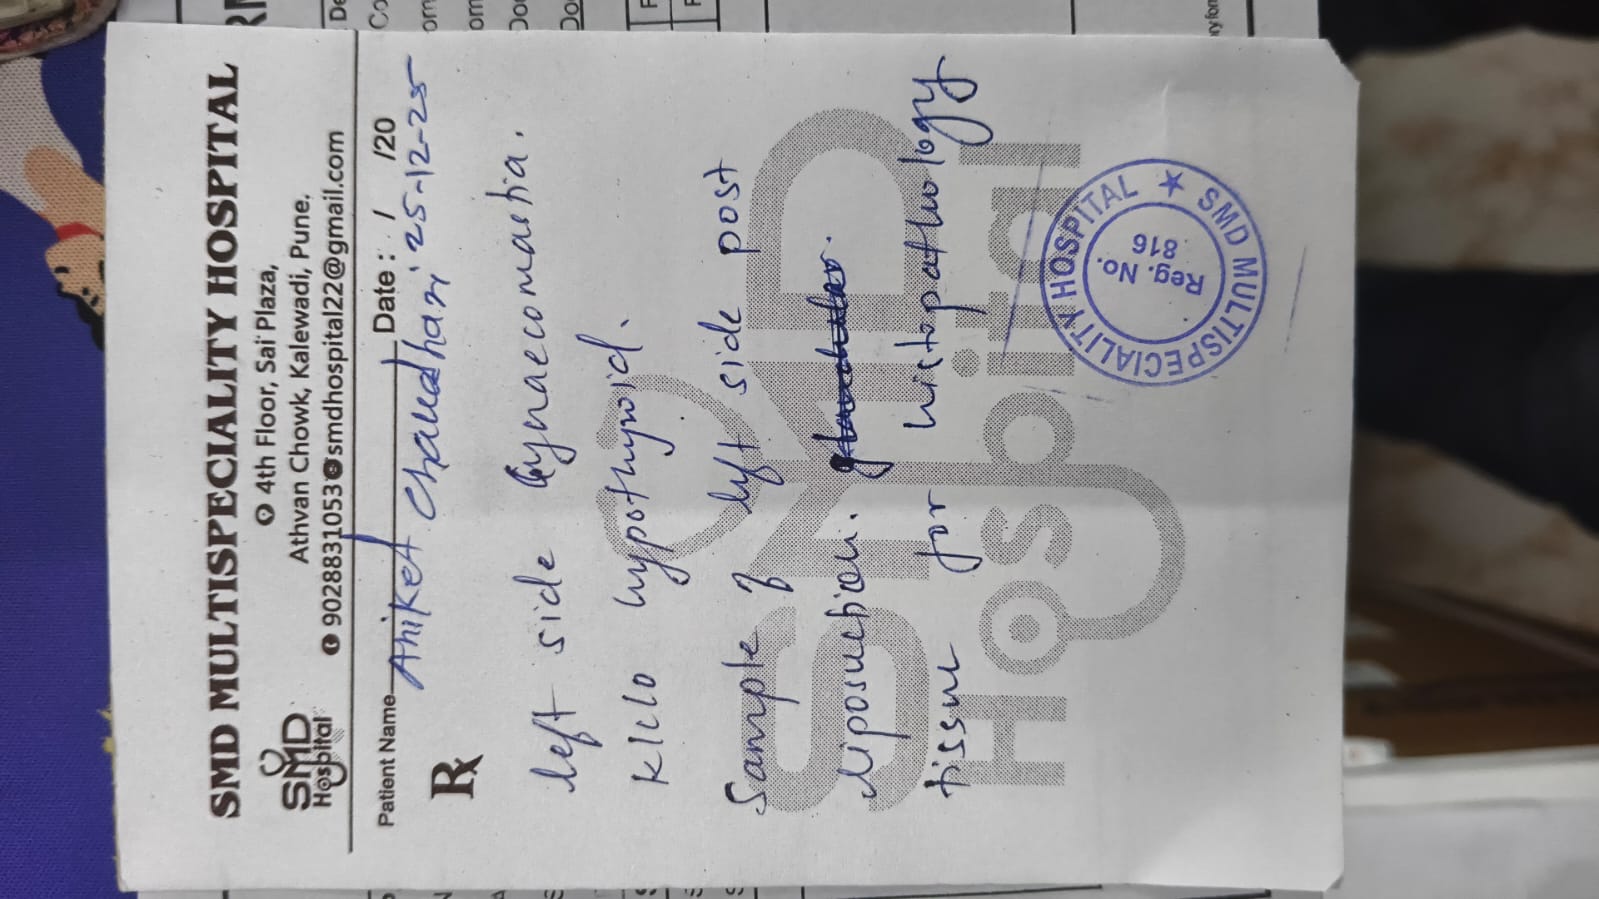 SMD MULTISPECIALITY HOSPITAL
SMD
Hospital
4th Floor, Sai Plaza,
Athvan Chowk, Kalewadi, Pune.
9028831053 smdhospital22@gmail.com
Patient Name Aniket Chaudhari Date : / /20
25-12-25
Rx
left side Gynaecomastia.
K/c/o hypothyroid.
Sample of left side post
liposuction.
tissue for histopathology
SMD Hospital
SMD MULTISPECIALITY HOSPITAL ★
Reg. No.
816